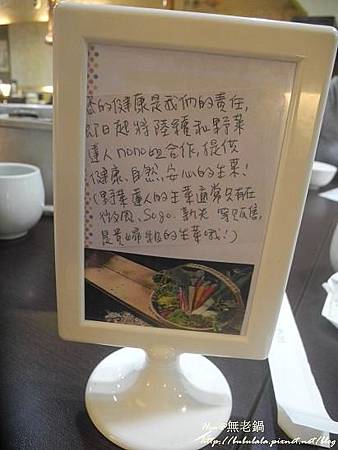 您的健康是我們的責任,
即日起將陸續和野菜
達人nono合作,提供
健康、自然、安心的生菜!
(野菜達人的生菜通常只有在
微風、Sogo、新光 寄賣
是貴婦級的生菜哦!)
無老鍋
http://bubulala.pixnet.net/blog